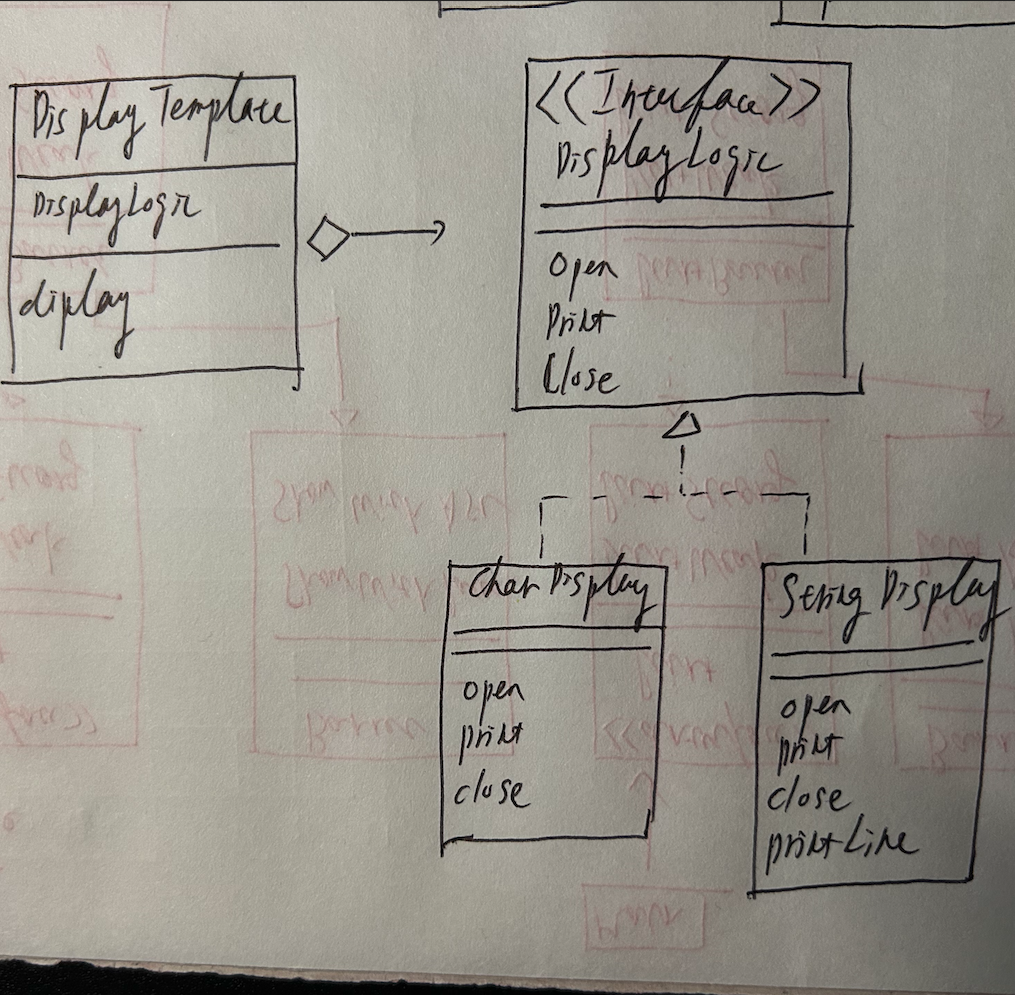 Display Template
DisplayLogic
diplay
<<Interface>>
DisplayLogic
Open
Print
Close
Char Display
open
print
close
String Display
open
print
close
printLine